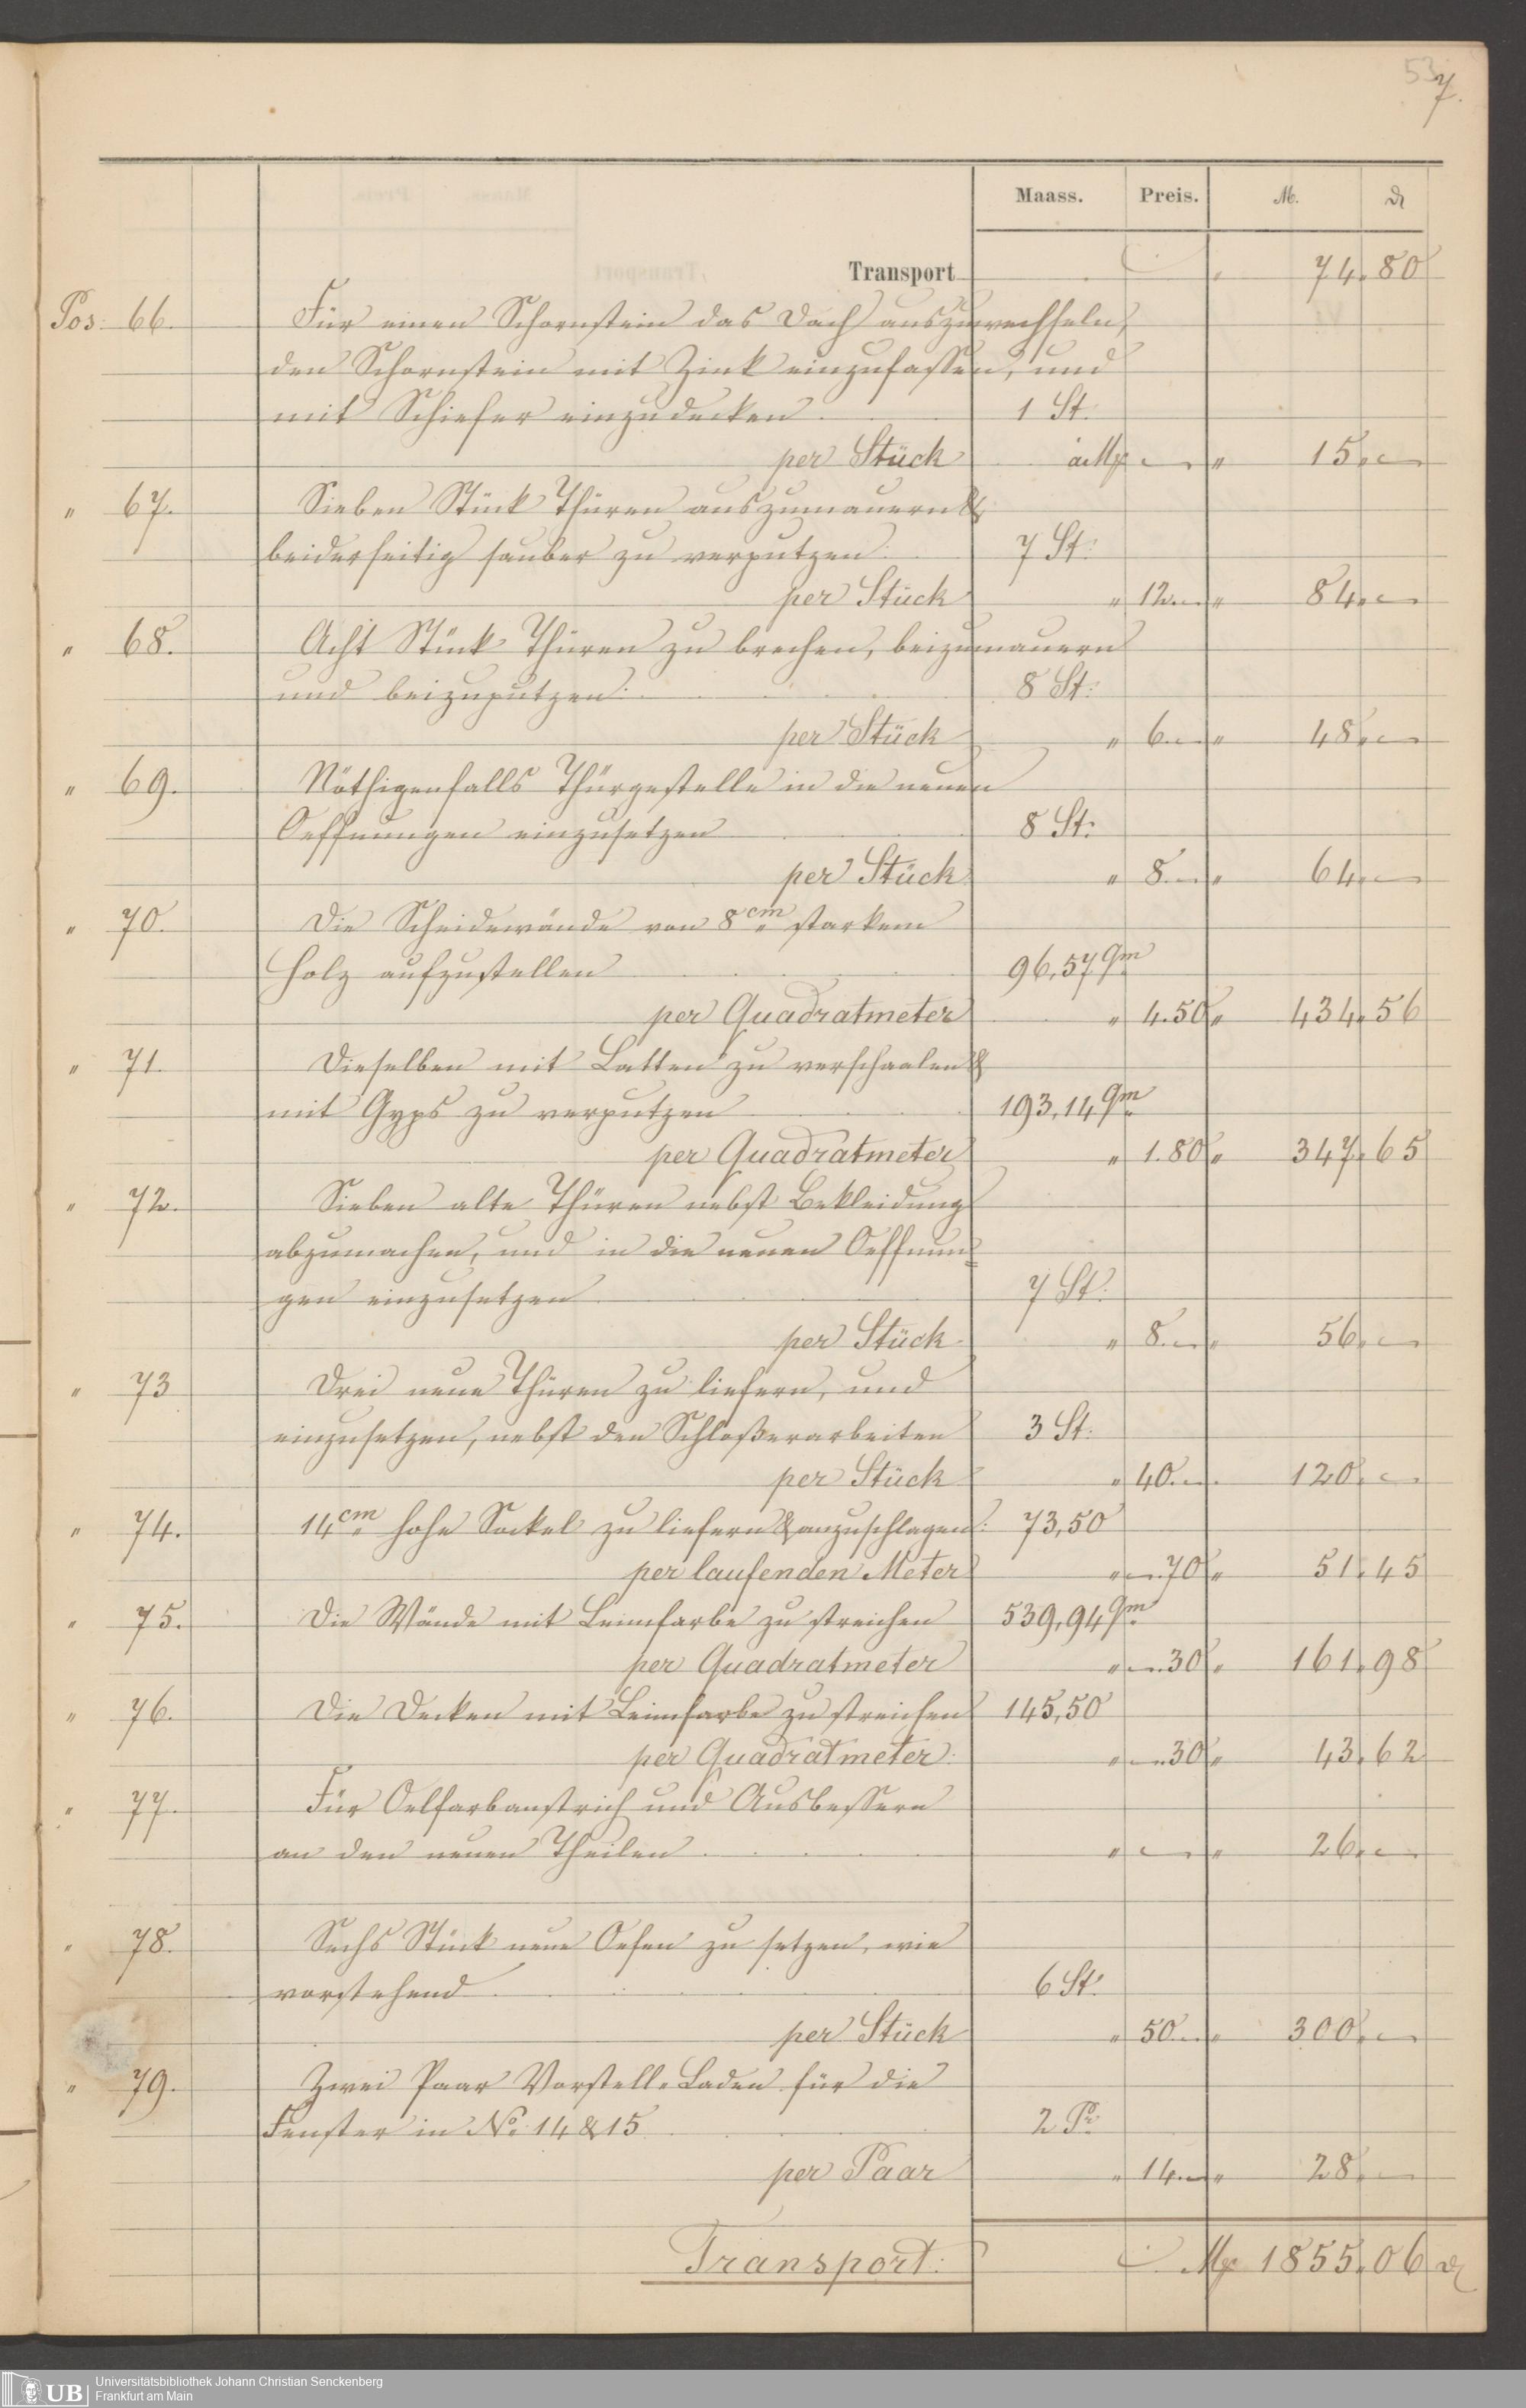 537.
Maass. Preis. M. ₰
Transport " 74. 80
Pos: 66. Für einen Schornstein das Dach auszuwechseln,
den Schornstein mit Zink einzufassen, und
mit Schiefer einzudecken . 1 St.
per Stück à M — " 15. —
" 67. Sieben Stück Thüren auszumauern &
beiderseitig sauber zu verputzen. 7 St:
per Stück " 12. — " 84. —
" 68. Acht Stück Thüren zu brechen, beizumauern
und beizuputzen: 8 St:
per Stück " 6. — " 48. —
" 69. Nöthigenfalls Thürgestelle in die neuen
Oeffnungen einzusetzen 8 St:
per Stück " 8. — " 64. —
" 70. Die Scheidewände von 8 cm starkem
Holz aufzustellen 96,57 qm
per Quadratmeter " 4.50 " 434. 56
" 71. Dieselben mit Latten zu verschaalen &
mit Gyps zu verputzen 193,14 qm
per Quadratmeter " 1.80 " 347. 65
" 72. Sieben alte Thüren nebst Bekleidung
abzumachen, und in die neuen Oeffnun=
gen einzusetzen 7 St:
per Stück " 8. — " 56. —
" 73 Drei neue Thüren zu liefern, und
einzusetzen, nebst den Schloßerarbeiten 3 St:
per Stück " 40. — " 120. —
" 74. 14 cm hohe Sockel zu liefern & anzuschlagen: 73,50
per laufenden Meter " —.70 " 51. 45
" 75. Die Wände mit Leimfarbe zu streichen 539,94 qm
per Quadratmeter " —.30 " 161. 98
" 76. Die Decken mit Leimfarbe zu streichen 145,50
per Quadratmeter: " —.30 " 43. 62
" 77. Für Oelfarbanstrich und Ausbessern
an den neuen Theilen " — " 26. —
" 78. Sechs Stück neue Oefen zu setzen, wie
vorstehend 6 St:
per Stück " 50. — " 300. —
" 79. Zwei Paar Vorstell-Laden für die
Fenster in No. 14 & 15 2 Pr
per Paar " 14. — " 28. —
Transport: M 1855. 06 ₰
UB Universitätsbibliothek Johann Christian Senckenberg
Frankfurt am Main